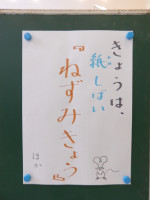 きょうは、
紙しばい
『ねずみきょう』
ほか